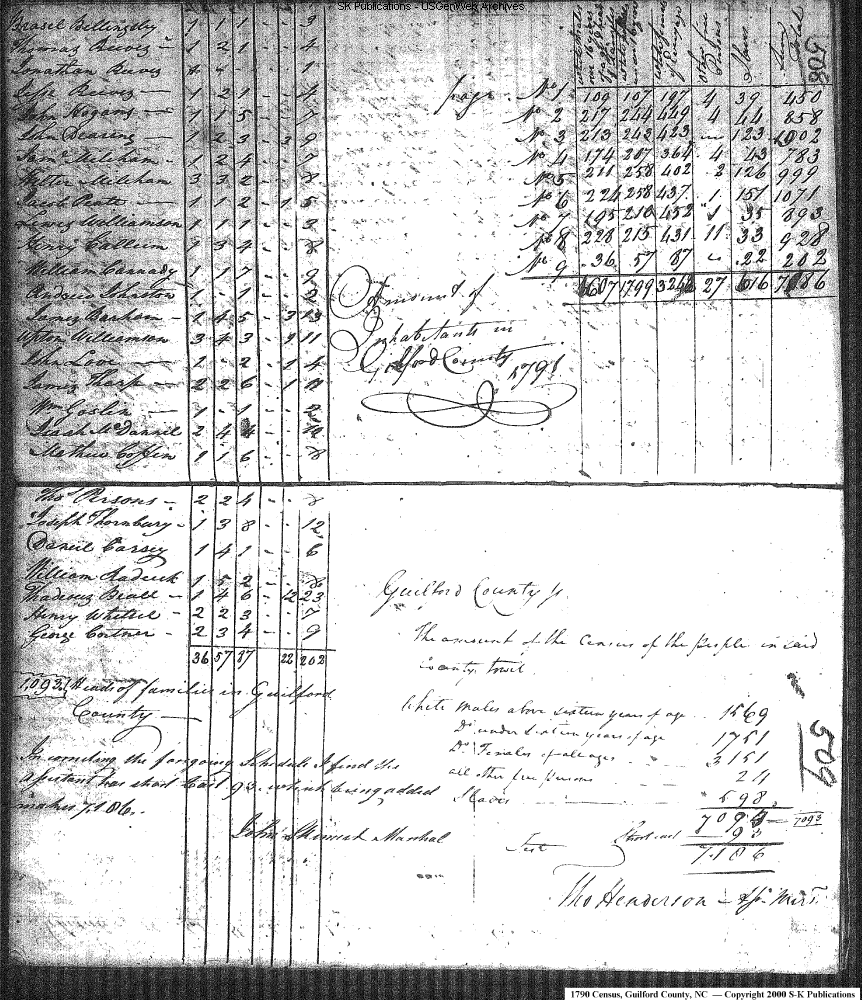 SK Publications - USGenWeb Archives
508
Brasel Billingsly 1 1 1 - - 3
Thomas Reeves - 1 2 1 - - 4
Jonathan Reeves 1
Jesse Reeves - 1 2 1 - - 4
John Hogans - 1 1 5 - - 7
John Dearing - 1 2 3 - 3 9
Sam.l Mileham - 1 2 4 - - 7
Mileham 3 3 2 - - 8
Jacob 1 1 2 - 1 5
Lewis Williamson 1 1 1 - - 3
Henry
William Cannady 1 1 7 - - 9
Andrew Johnston 1 - 1 - - 2
James Barham - 1 4 5 - 3 13
Upton Williamson 3 4 3 - 1 11
John Love 1 - 2 - 1 4
James Tharp - 2 2 6 - 1 11
Wm Goslin - 1 - 1 - - 2
McDannil 2 4 4 - -
Mathew Coffin 1 1 6 - - 8
page No 1 100 107 197 4 39 450
No 2 217 244 449 4 44 858
No 3 213 243 423 - 123 1002
No 4 174 207 364 4 43 783
No 5 211 258 402 2 126 999
No 6 224 258 437 1 151 1071
No 7 195 210 452 1 35 893
No 8 228 215 431 11 33 928
No 9 36 57 87 - 22 202
1607 1799 3242 27 616 7186
Amount of
Inhabitants in
Guilford County
1791
Tho.s Persons - 2 2 4 - - 8
Joseph Thornbury - 1 3 8 - - 12
Daniel Carsey 1 4 1 - - 6
William 1 5 2 - - 8
Beall - 1 4 6 - 12 23
Henry Whittel - 2 2 3 - - 7
George Cortner - 2 3 4 - - 9
36 57 87 22 202
1,093 Heads of families in Guilford
County
In counting the forgoing Schedule I find the
assistant has short Cast 93. which being added
makes 7.186.
John Skinner Marshal
Guilford County Ss
The amount of the Census of the People in said
County towit
White Males above sixteen years of age 1569
Do under sixteen years of age 1751
Do Females of all ages 3151
all other free persons 24
Slaves 598
7093 7093
Short cast 93
7.186
Test
Tho Henderson - Assi. Mars.
509
1790 Census, Guilford County, NC — Copyright 2000 S-K Publications